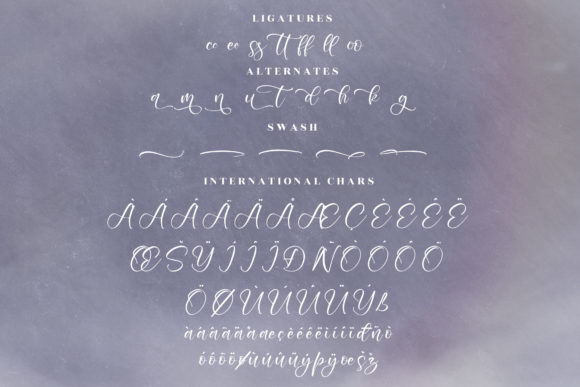 LIGATURES
cc ee ss tt ff ll oo
ALTERNATES
a m n u t d h k g
SWASH
INTERNATIONAL CHARS
ÀÁÂÃÄÅÆÇÈÉÊË
ŒŠŸÌÍÎÏÐÑÒÓÔÕ
ÖØÙÚÛÜÝß
àáâãäåæçèéêëìíîïđñò
óôõöøùúûüýþÿœšž